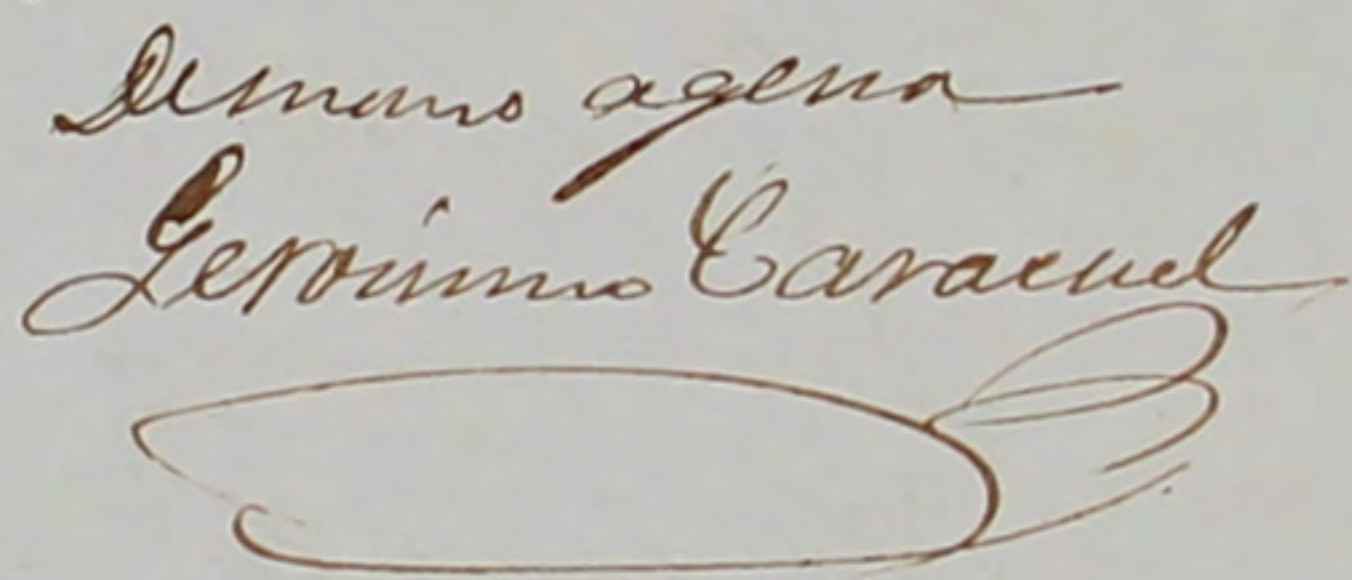 De mano agena
Gerónimo Caracuel